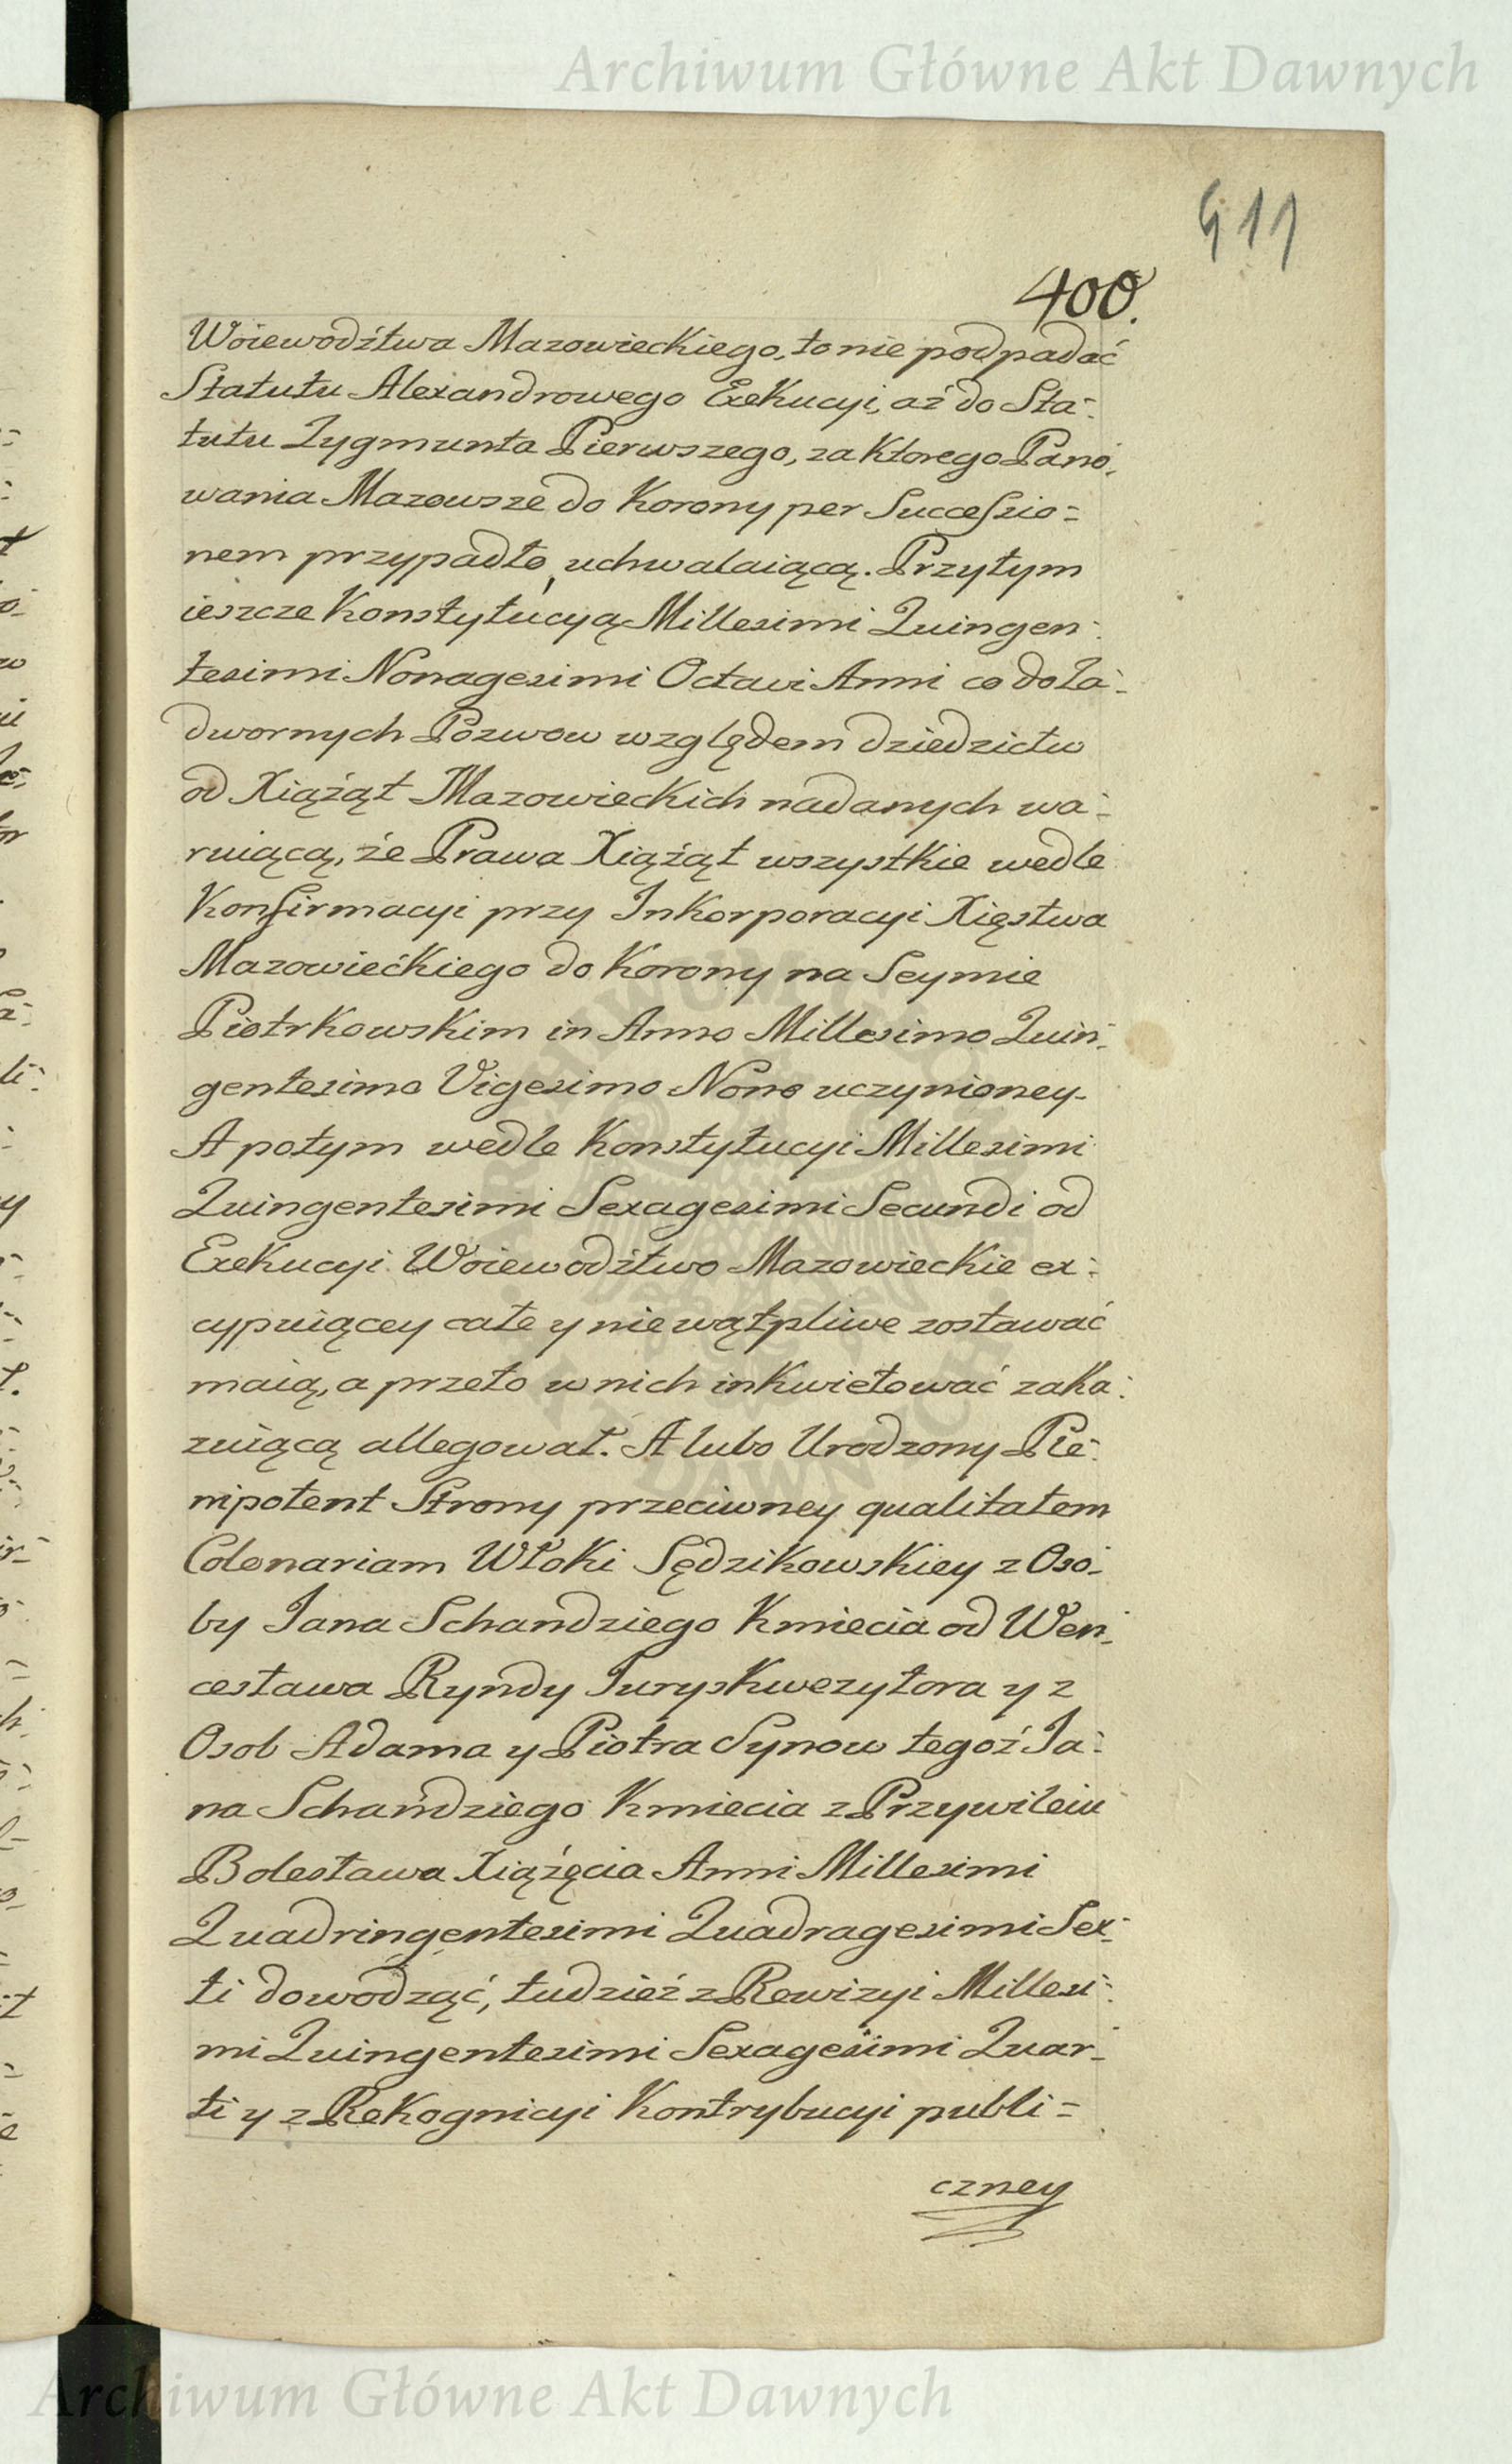 Archiwum Główne Akt Dawnych
411
400.
Woiewodźtwa Mazowieckiego, to nie podpadać
Statutu Alexandrowego Exekucyi, aż do Sta-
tutu Zygmunta Pierwszego, za Ktorego Pano-
wania Mazowsze do Korony per Succeſsio=
nem przypadło, uchwalaiącą. Przytym
ieszcze Konstytucyą Millesimi Quingen-
tesimi Nonagesimi Octavi Anni co do Za-
dwornych Pozwow względem dziedzictw
od Xiążąt Mazowieckich nadanych wa-
ruiącą, że Prawa Xiążąt wszystkie wedle
Konfirmacyi przy Inkorporacyi Xięstwa
Mazowieckiego do Korony na Seymie
Piotrkowskim in Anno Millesimo Quin-
gentesimo Vigesimo Nono uczynioney.
A potym wedle Konstytucyi Millesimi
Quingentesimi Sexagesimi Secundi od
Exekucyi Woiewodźtwo Mazowieckie ex-
cypuiącey całe y niewątpliwe zostawać
maią, a przeto w nich inkwietować zaka-
zuiącą allegował. A lubo Urodzony Ple-
nipotent Strony przeciwney qualitatem
Colonariam Włoki Sędzikowskiey z Oso-
by Jana Schandziego Kmiecia od Wen-
cesława Ryndy Juryskwezytora y z
Osob Adama y Piotra Synow tegoż Ja-
na Schańdziego Kmiecia z Przywileiu
Bolesława Xiążęcia Anni Millesimi
Quadringentesimi Quadragesimi Sex-
ti dowodząć, tudzież z Rewizyi Millesi-
mi Quingentesimi Sexagesimi Quar-
ti y z Rekognicyi Kontrybucyi publi=
czney
Archiwum Główne Akt Dawnych